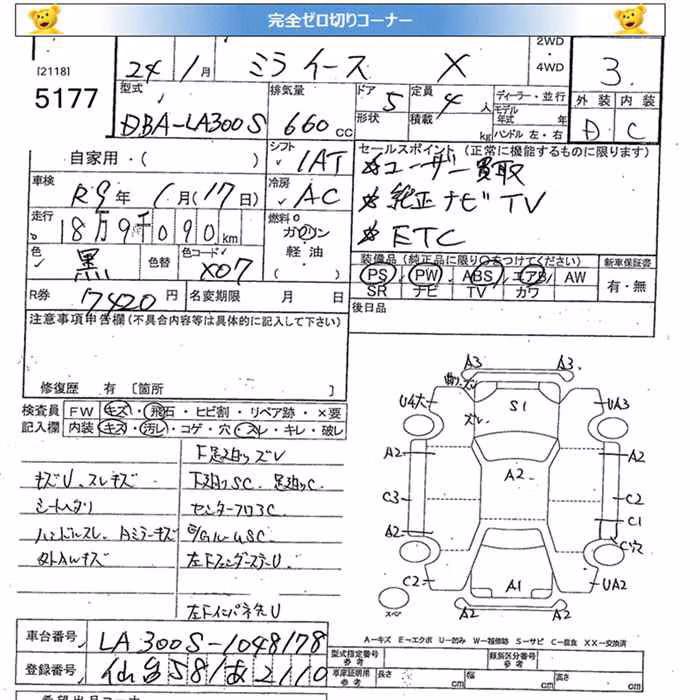 完全ゼロ切りコーナー
[2118]
5177
24/1月
ミライース X
2WD
・
4WD
3.
外装 内装
D C
型式
DBA-LA300S
排気量
660 cc
ドア 5
形状
定員 4 人
積載 kg
ディーラー・並行
モデル
年式 年
ハンドル 左・右
自家用・( )
シフト
IAT
冷房
AC
車検
R9年 1月(17日)
走行
18万9千090km
燃料
ガソリン
軽油
色
黒
色替
色コード
X07
R券 7420円
名変期限 月 日
セールスポイント(正常に機能するものに限ります)
*ユーザー買取
*純正ナビTV
*ETC
装備品(純正品に限り○をつけてください)
PS PW ABS エアB AW
SR ナビ TV カワ
新車保証書
有・無
後日品
注意事項申告欄(不具合内容等は具体的に記入して下さい)
修復歴 有〔箇所
検査員
記入欄
FW キズ・飛石・ヒビ割・リペア跡・×要
内装 キズ・汚レ・コゲ・穴・スレ・キレ・破レ
下足廻りズレ
キズU、スレキズ
下廻りSC、足廻りC
シートヘタリ
センターフロアC
ハンドルスレ、Aミラーキズ
左F
U
左下インパネ先U
A3 A3
U4大 S1 UA3
ズレ
A2 A2 A2
C3 C2
C1
A2 C穴
C2 A1 UA2
スペア A2 A2
A-キズ E-エクボ U-凹み W-補修跡 S-サビ C-腐食 XX-交換済
車台番号 LA300S-1048178
登録番号 仙台581あ2110
型式指定番号
参考
類別区分番号
参考
車庫証明用
参考
長さ cm
幅 cm
高さ cm
希望出品コーナー